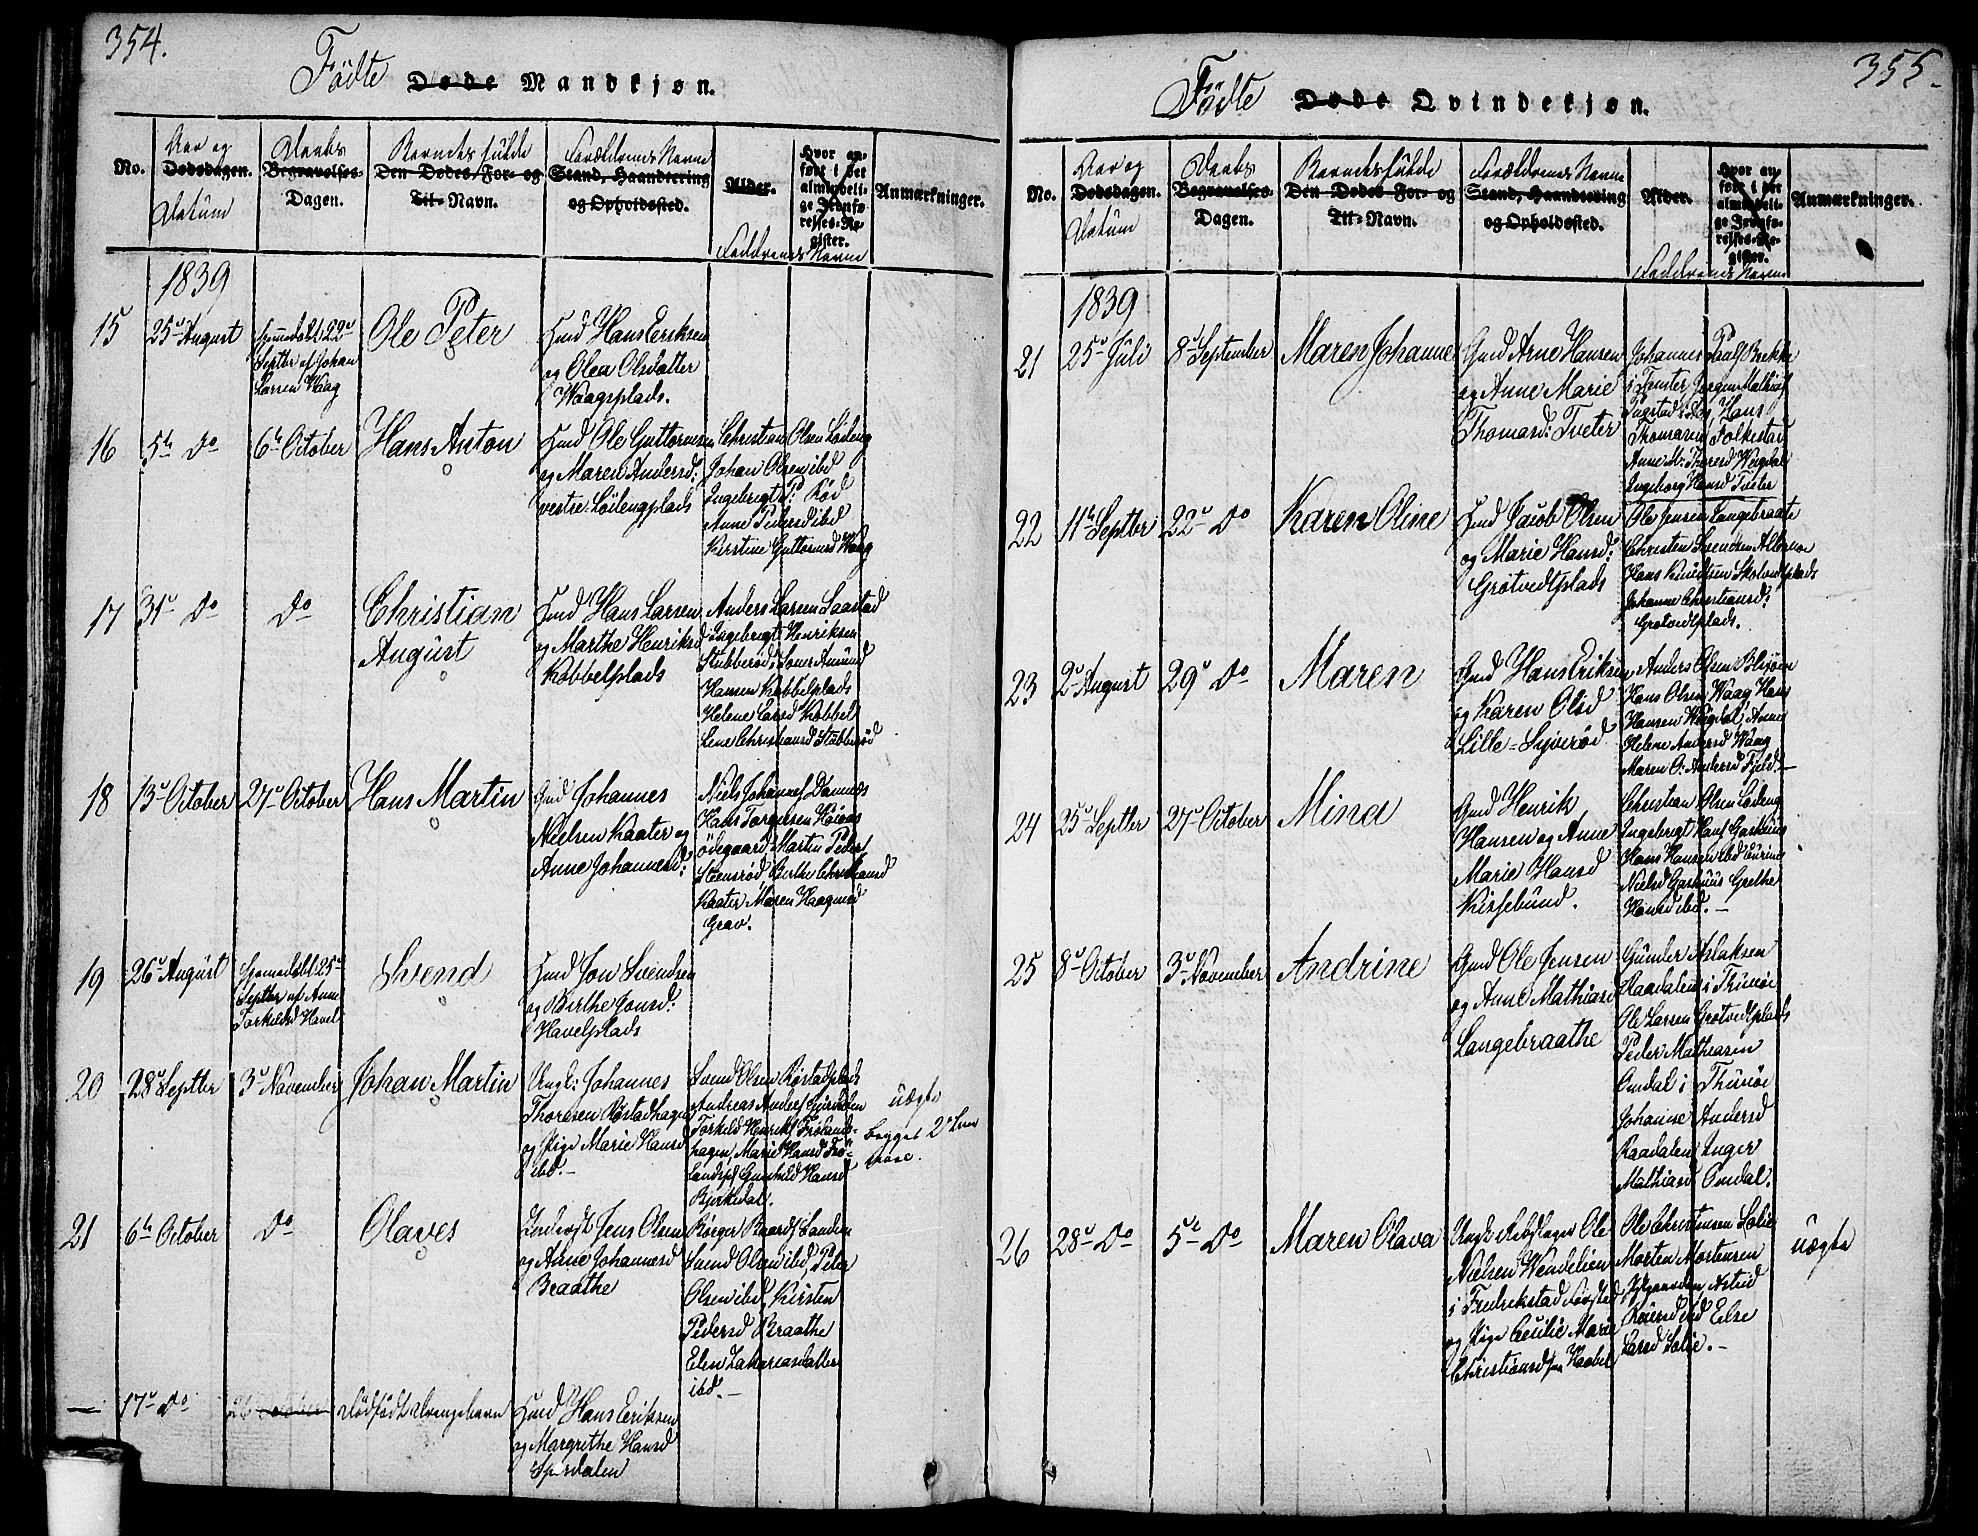 354.
Födte Døde Mandkjøn.
No.
Aar og
Dødsdagen.
Datum
Daabs
Begravelses-
Dagen.
Barnets fulde
Den Dødes For- og
Til-Navn.
Forældrenes Navne
Stand, Haandtering
og Opholdssted.
Alder.
Hvor an-
ført i det
almindeli-
ge Jevnfø-
relses-Re-
gister.
Faddernes Navne
Anmærkninger.
1839
15
25de August
Hjemdøbt 22de
Septbr af Johan
Larsen Waag
Ole Peter
Hmd Hans Eriksen
og Olea Olsdatter
Waagsplads.
16
5te Do
6te October
Hans Anton
Hmd Ole Guttormsen
og Maren Andersd:
vestre Löilengplads
Christian Olsen Löileng
Johan Olsen ibd
Ingebrigt P: Röd
Anne Pedersd ibd
Kirstine Guttormsd Waag
17
31te Do
Do
Christian
August
Hmd Hans Larsen
og Marthe Henriksd
Kobbelplads
Anders Larsen Saastad
Ingebrigt Henriksen
Stubberöd, Soner Amund
Hansen Kobbelplads
Helene Larsd Kobbel
Lene Christiansd Stubberöd
18
13de October
27de October
Hans Martin
Gmd Johannes
Nielsen Kaater og
Anne Johannesd:
Niels Johannes Damnæs
Hans Torgersen Höiaas
ödegaard, Martin Peder
Steensröd Birthe Christiansd
Kaater, Maren Haagensd
Grav.
19
26de August
Hjemmedöbt 25de
Septbr af Anne
Torkildsd Havel
Svend
Hmd Jon Svendsen
og Birthe Jonsd:
Havelplads
20
28de Septbr
3de November
Johan Martin
Ungk: Johannes
Thoresen Röstadhagen
og Pige Marie Hansd
ibd.-
Svend Olsen Röstadplads
Andreas Anders
Torkild Henriks Frölands-
hagen, Marie Hansd Frö-
landspl Gunhild Hansd
Bjerkedal.
uægte
begges 2det Leier
maal.
21
6te October
Do
Olaves
Jens Olsen
og Anne Johannesd
Braathe
Röeger Baards Sanden
Svend Olsen ibd, Peter
Olsen ibd, Kirsten
Pedersd Braathe
Elen Zakariasdatter
ibd.-
—
17de Do
26 October
Dödfödt Drengebarn
Hmd Hans Eriksen
og Margrethe Hansd
Spirdalen
355.
Födte Døde Qvindekjøn.
No.
Aar og
Dødsdagen.
Datum
Daabs
Begravelses-
Dagen.
Barnets fulde
Den Dødes For- og
Til-Navn.
Forældrenes Navne
Stand, Haandtering
og Opholdssted.
Alder.
Hvor an-
ført i det
almindeli-
ge Jevnfø-
relses-Re-
gister.
Faddernes Navne
Anmærkninger.
1839
21
25de Juli
8de September
Maren Johanne
Gmd Arne Hansen
og Anne Marie
Thomasd: Tveter
Johannes Paals Brekke
i Tomter, Jörgen Mathias
Hans
Thomasen Folkestad
Anne M: Thoresd Weigdal
Ingeborg Hansd Tveter
22
11te Septbr
22de Do
Karen Oline
Hmd Jacob Olsen
og Marie Hansd:
Grötvedtplads
Ole Jensen Langebraate
Christen Svendsen
Hans Knudsen Skolvedtplads
Johanne Christiansd:
Grötvedtplads.
23
2de August
29de Do
Maren
Gmd Hans Eriksen
og Karen Olsd
Lille-Syveröd
Anders Olsen
Hans Olsen Waag Hans
Hansen Weigdal, Anne
Helene Andersd Waag
Maren O: Andersd Fjeld.-
24
25de Septbr
27de October
Mina
Gmd Henrik
Hansen og Anne
Marie Hansd
Kirsebund.
Christian Olsen Löileng
Ingebrigt Hans Gashuus
Hans Hansen ibd Eurine
Nielsd Gashuus Grethe
Hansd ibd.-
25
8de October
3de November
Andrine
Gmd Ole Jensen
og Anne Mathiasd
Langebraathe
Gunder Aslaksen
Raadalen i Thunöe
Ole Larsen Grötvedtplads
Peder Mathiasen
Omdal i Thunöe
Johanne Andersd
Raadalen Inger
Mathiasd Omdal.
26
28de Do
5te Do
Maren Olava
Ungk: Rebslager Ole
Nielsen Wendelien
i Fredrikstad Forsted
og Pige Cecilie Marie
Christiansd fra Haabel
Ole Christensen Solie
Morten Mortensen
Astrid
Roersd ibd Else
Larsd Solie.-
uægte